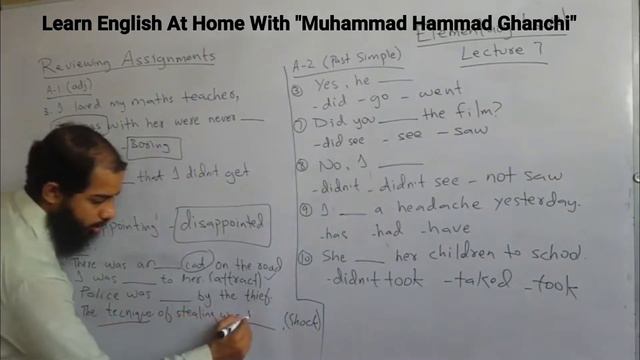 Learn English At Home With "Muhammad Hammad Ghanchi"
Lecture 7
Reviewing Assignments
A-1 (adj)
3. I loved my maths teacher,
with her were never ___
Boring
___ that I didn't get
disappointed
There was an ___ cat on the road
I was ___ to her (attract)
Police was ___ by the thief.
The tecnique of stealing was
. (Shock)
A-2 (Past Simple)
Yes, he ___
-did -go -went
⑦ Did you ___ the film?
-did see -see -saw
⑧ No, I ___
-didn't -didn't see -not saw
⑨ I ___ a headache yesterday.
-has -had -have
⑩ She ___ her children to school.
-didn't took -taked -took